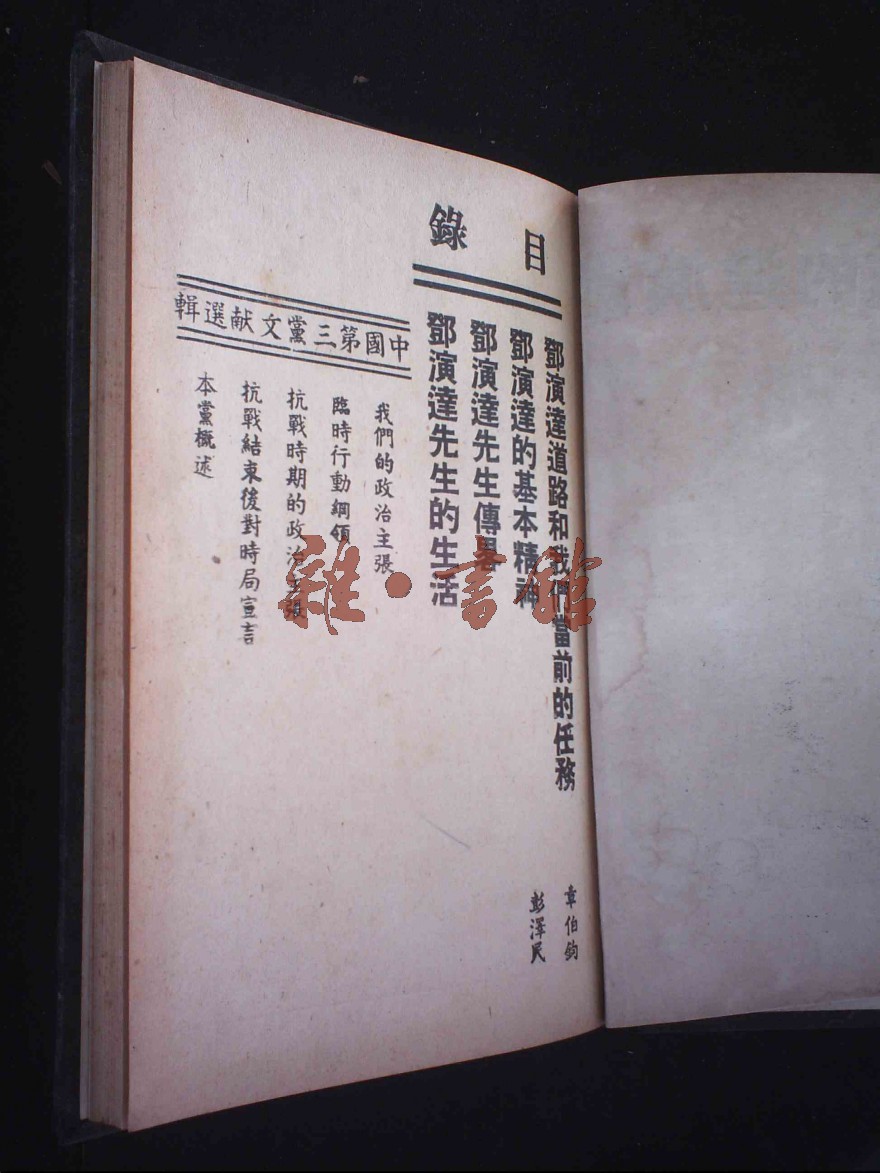 目錄
鄧演達道路和我們當前的任務
章伯鈞
鄧演達的基本精神
彭澤民
鄧演達先生傳畧
鄧演達先生的生活
中國第三黨文献選輯
我們的政治主張
臨時行動綱領
抗戰時期的政治主張
抗戰結束後對時局宣言
本黨概述
雜·書館